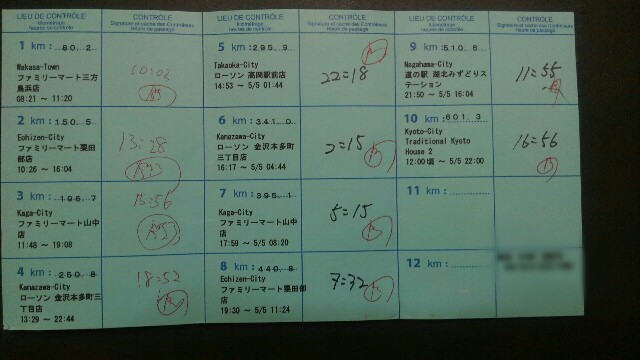 LIEU DE CONTRÔLE
kilométrage
heures de contrôle
CONTRÔLE
Signature et cachet des Contrôleurs
heure de passage
1 km : 80. 2
Wakasa-Town
ファミリーマート三方
鳥浜店
08:21 ～ 11:20
10:02
2 km : 150. 5
Echizen-City
ファミリーマート粟田
部店
10:26 ～ 16:04
13:28
3 km : 196. 7
Kaga-City
ファミリーマート山中
店
11:48 ～ 19:08
15:56
4 km : 250. 8
Kanazawa-City
ローソン 金沢本多町三
丁目店
13:29 ～ 22:44
18:52
LIEU DE CONTRÔLE
kilométrage
heures de contrôle
CONTRÔLE
Signature et cachet des Contrôleurs
heure de passage
5 km : 295. 9
Takaoka-City
ローソン 高岡駅前店
14:53 ～ 5/5 01:44
22=18
6 km : 341. 0
Kanazawa-City
ローソン 金沢本多町
三丁目店
16:17 ～ 5/5 04:44
2=15
7 km : 395. 1
Kaga-City
ファミリーマート山中
店
17:59 ～ 5/5 08:20
5=15
8 km : 440. 8
Echizen-City
ファミリーマート粟田部
店
19:30 ～ 5/5 11:24
7=32
LIEU DE CONTRÔLE
kilométrage
heures de contrôle
CONTRÔLE
Signature et cachet des Contrôleurs
heure de passage
9 km : 510. 6
Nagahama-City
道の駅 湖北みずどりス
テーション
21:50 ～ 5/5 16:04
11=55
10 km : 601. 3
Kyoto-City
Traditional Kyoto
House 2
12:00頃 ～ 5/5 22:00
16=56
11 km :
12 km :